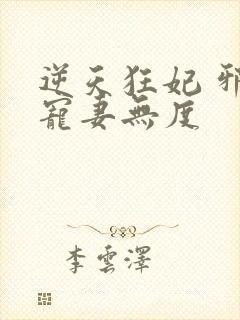 逆天狂妃 邪
寵妻無度
李雲澤